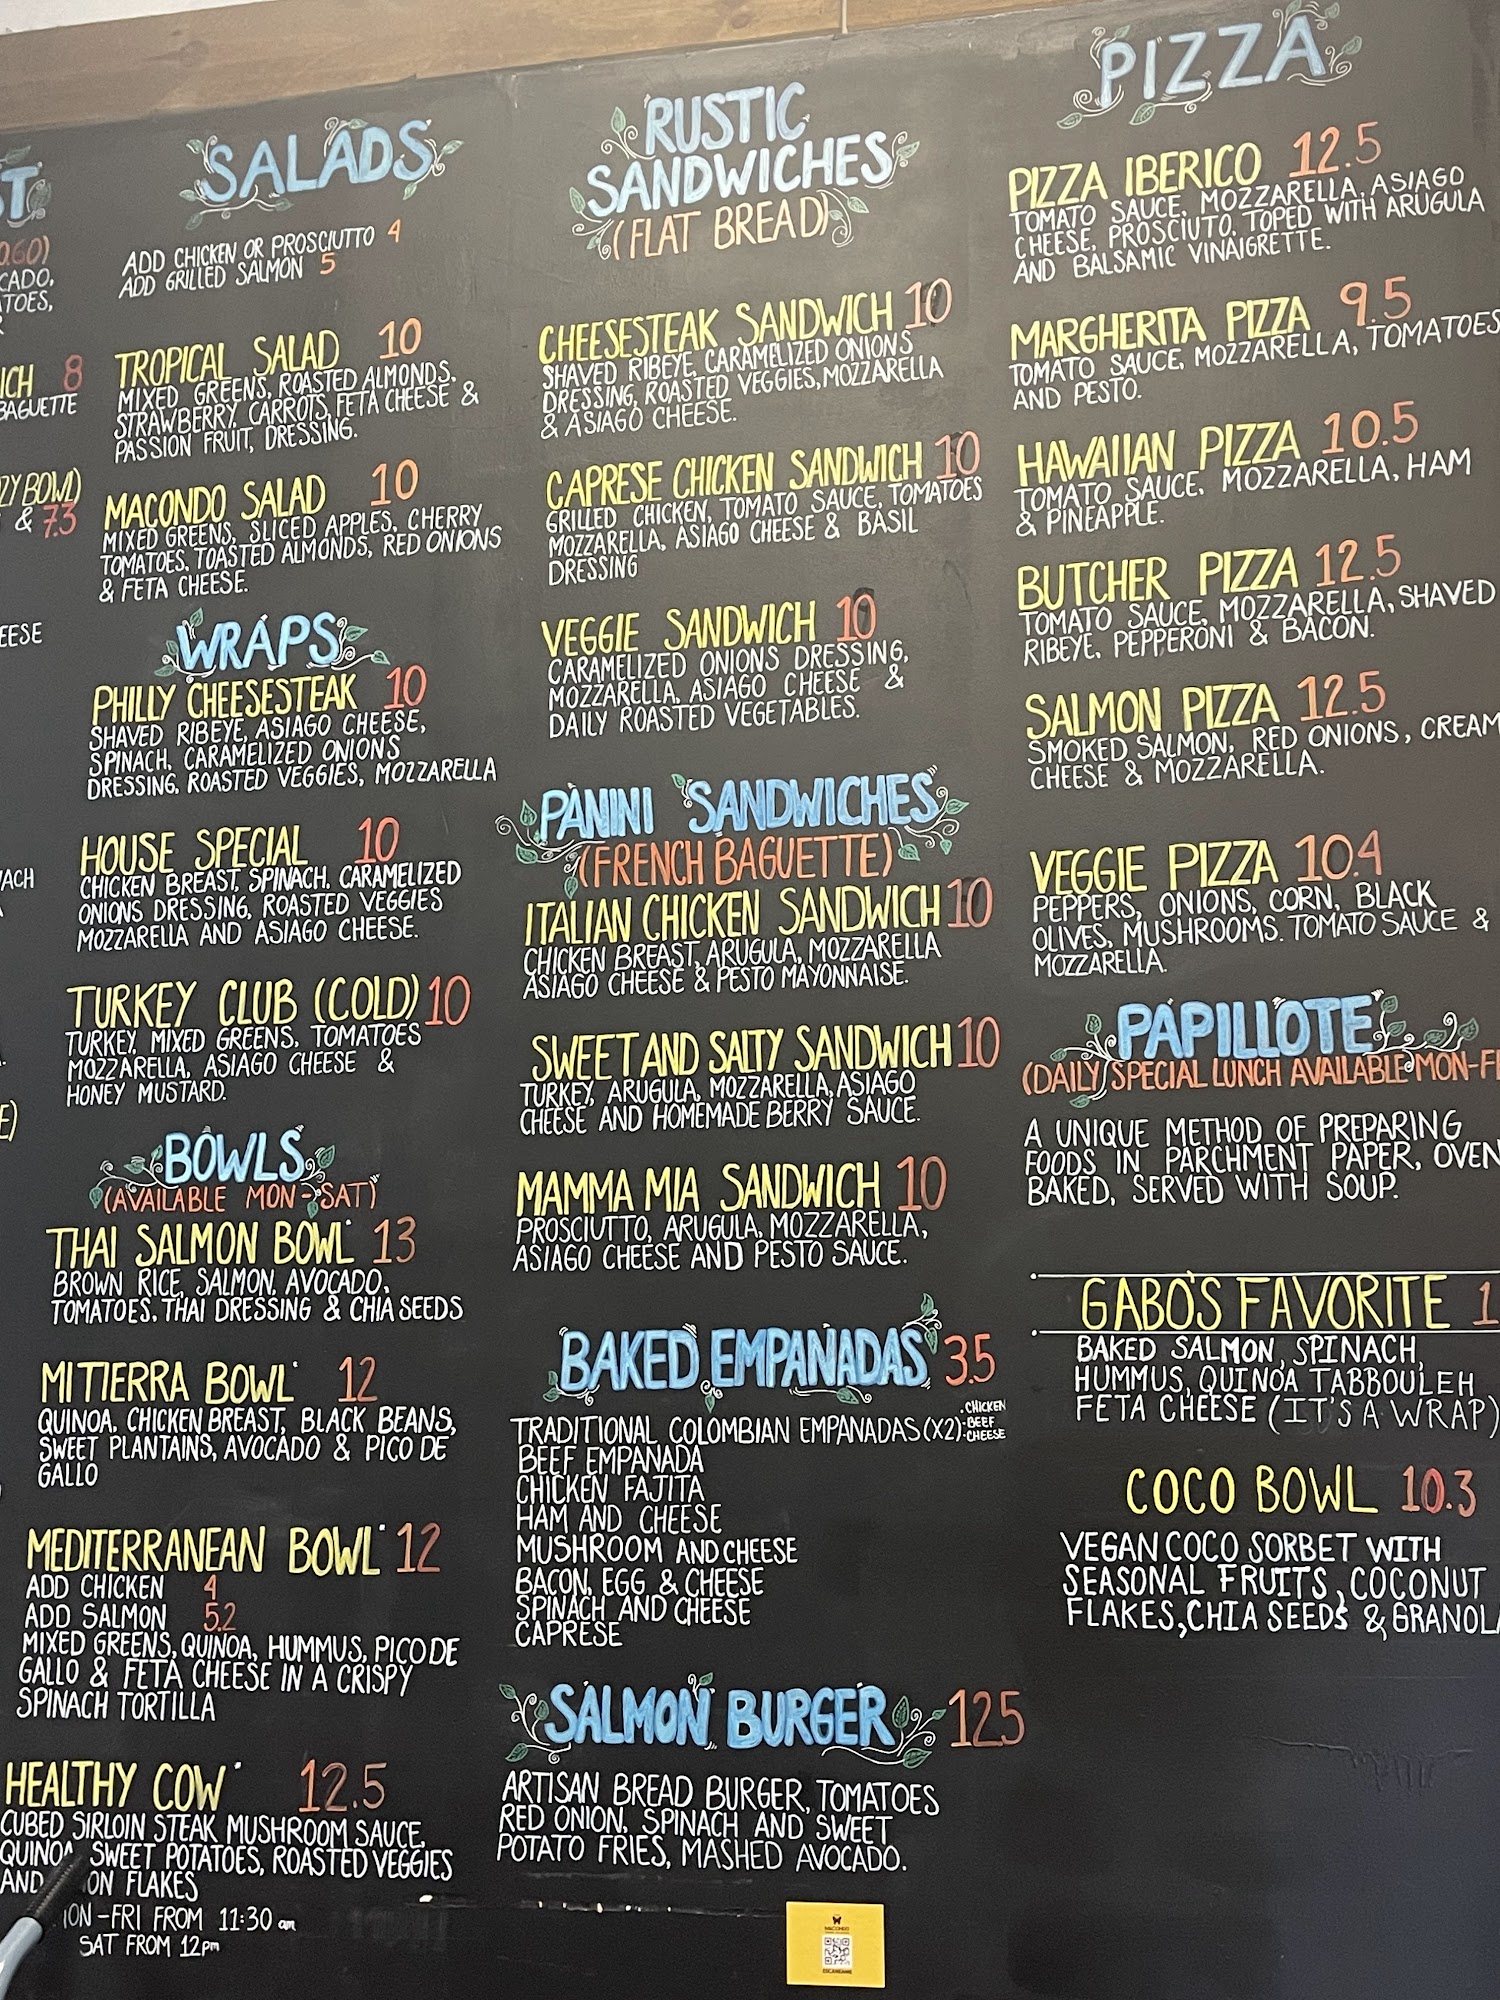 ST
0.60)
CADO,
TOES,
ICH 8
BAGUETTE
ZY BOWL)
& 7.3
EESE
ACH
E)
SALADS
ADD CHICKEN OR PROSCIUTTO 4
ADD GRILLED SALMON 5
TROPICAL SALAD 10
MIXED GREENS, ROASTED ALMONDS,
STRAWBERRY, CARROTS, FETA CHEESE &
PASSION FRUIT, DRESSING.
MACONDO SALAD 10
MIXED GREENS, SLICED APPLES, CHERRY
TOMATOES, TOASTED ALMONDS, RED ONIONS
& FETA CHEESE.
WRAPS
PHILLY CHEESESTEAK 10
SHAVED RIBEYE, ASIAGO CHEESE,
SPINACH, CARAMELIZED ONIONS
DRESSING, ROASTED VEGGIES, MOZZARELLA
HOUSE SPECIAL 10
CHICKEN BREAST, SPINACH, CARAMELIZED
ONIONS DRESSING, ROASTED VEGGIES
MOZZARELLA AND ASIAGO CHEESE.
TURKEY CLUB (COLD) 10
TURKEY, MIXED GREENS, TOMATOES
MOZZARELLA, ASIAGO CHEESE &
HONEY MUSTARD.
BOWLS
(AVAILABLE MON-SAT)
THAI SALMON BOWL* 13
BROWN RICE, SALMON, AVOCADO,
TOMATOES, THAI DRESSING & CHIA SEEDS
MITIERRA BOWL* 12
QUINOA, CHICKEN BREAST, BLACK BEANS,
SWEET PLANTAINS, AVOCADO & PICO DE
GALLO
MEDITERRANEAN BOWL* 12
ADD CHICKEN 4
ADD SALMON 5.2
MIXED GREENS, QUINOA, HUMMUS, PICO DE
GALLO & FETA CHEESE IN A CRISPY
SPINACH TORTILLA
HEALTHY COW* 12.5
CUBED SIRLOIN STEAK MUSHROOM SAUCE,
QUINOA SWEET POTATOES, ROASTED VEGGIES
AND ON FLAKES
ON-FRI FROM 11:30 am
SAT FROM 12pm
RUSTIC
SANDWICHES
(FLAT BREAD)
CHEESESTEAK SANDWICH 10
SHAVED RIBEYE, CARAMELIZED ONIONS
DRESSING, ROASTED VEGGIES, MOZZARELLA
& ASIAGO CHEESE.
CAPRESE CHICKEN SANDWICH 10
GRILLED CHICKEN, TOMATO SAUCE, TOMATOES
MOZZARELLA, ASIAGO CHEESE & BASIL
DRESSING
VEGGIE SANDWICH 10
CARAMELIZED ONIONS DRESSING,
MOZZARELLA, ASIAGO CHEESE &
DAILY ROASTED VEGETABLES.
PANINI SANDWICHES
(FRENCH BAGUETTE)
ITALIAN CHICKEN SANDWICH 10
CHICKEN BREAST, ARUGULA, MOZZARELLA
ASIAGO CHEESE & PESTO MAYONNAISE.
SWEET AND SALTY SANDWICH 10
TURKEY, ARUGULA, MOZZARELLA, ASIAGO
CHEESE AND HOMEMADE BERRY SAUCE.
MAMMA MIA SANDWICH 10
PROSCIUTTO, ARUGULA, MOZZARELLA,
ASIAGO CHEESE AND PESTO SAUCE.
BAKED EMPANADAS 3.5
TRADITIONAL COLOMBIAN EMPANADAS (X2): .CHICKEN
-BEEF
-CHEESE
BEEF EMPANADA
CHICKEN FAJITA
HAM AND CHEESE
MUSHROOM AND CHEESE
BACON, EGG & CHEESE
SPINACH AND CHEESE
CAPRESE
SALMON BURGER 12.5
ARTISAN BREAD BURGER, TOMATOES
RED ONION, SPINACH AND SWEET
POTATO FRIES, MASHED AVOCADO.
MACONDO
PIZZA
PIZZA IBERICO 12.5
TOMATO SAUCE, MOZZARELLA, ASIAGO
CHEESE, PROSCIUTO, TOPED WITH ARUGULA
AND BALSAMIC VINAIGRETTE.
MARGHERITA PIZZA 9.5
TOMATO SAUCE, MOZZARELLA, TOMATOES
AND PESTO.
HAWAIIAN PIZZA 10.5
TOMATO SAUCE, MOZZARELLA, HAM
& PINEAPPLE.
BUTCHER PIZZA 12.5
TOMATO SAUCE, MOZZARELLA, SHAVED
RIBEYE, PEPPERONI & BACON.
SALMON PIZZA 12.5
SMOKED SALMON, RED ONIONS, CREAM
CHEESE & MOZZARELLA.
VEGGIE PIZZA 10.4
PEPPERS, ONIONS, CORN, BLACK
OLIVES, MUSHROOMS. TOMATO SAUCE &
MOZZARELLA.
PAPILLOTE
(DAILY SPECIAL LUNCH AVAILABLE MON-F
A UNIQUE METHOD OF PREPARING
FOODS IN PARCHMENT PAPER, OVEN
BAKED, SERVED WITH SOUP.
GABO'S FAVORITE 1
BAKED SALMON, SPINACH,
HUMMUS, QUINOA TABBOULEH
FETA CHEESE (IT'S A WRAP)
COCO BOWL 10.3
VEGAN COCO SORBET WITH
SEASONAL FRUITS, COCONUT
FLAKES, CHIA SEEDS & GRANOLA